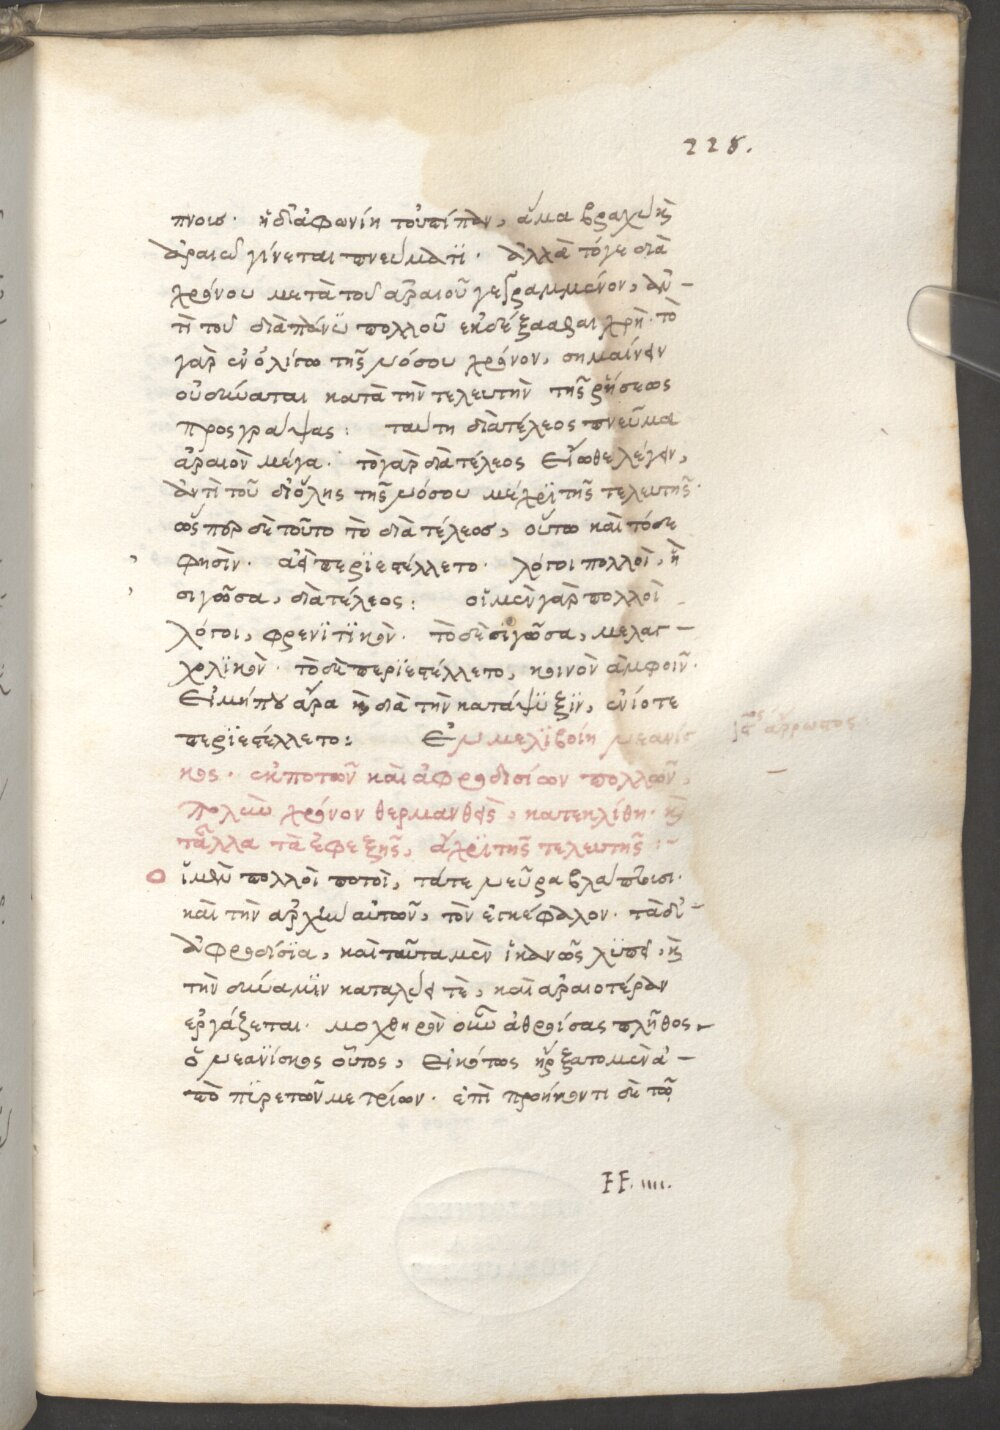 228.
πνοισ· ἡ διαφωνίη τουπίπαν, ἅμα βραχεῖ καὶ
ἀραιῶ γίνεται πνεύματϊ· ἀλλὰ τόγε διὰ
χρόνου μετὰ τοῦ ἀραιοῦ γεγραμμένον, ἀν-
τὶ τοῦ διὰ πάνϋ πολλοῦ ἐκδέξασθαι χρή· τὸ
γὰρ ἐν ὀλίγω τῆς νόσου χρόνον, σημαίνειν
οὐ δύναται κατὰ τὴν τελευτὴν τῆς ῥήσεως
προσγράψας: ταύτη διατέλεος πνεῦμα
ἀραιὸν μέγα· τὸ γὰρ διὰ τέλεος εἴωθε λέγειν,
ἀντὶ τοῦ δι' ὅλης τῆς νόσου μέχρϊ τῆς τελευτῆς·
ὥσπερ δὲ τοῦτο τὸ διὰ τέλεος, οὕτω καὶ τόδε
φησὶν· ἀεὶ περϊεστέλλετο· λόγοι πολλοὶ, ἢ
σιγῶσα, διατέλεος: οἱ μὲν γὰρ πολλοὶ
λόγοι, φρενϊτϊκὸν· τὸ δὲ σιγῶσα, μελαγ-
χολϊκὸν· τὸ δὲ περϊεστέλλετο, κοινὸν ἀμφοῖν·
Εἰ μήπου ἄρα καὶ διὰ τὴν κατάψϋξϊν, ἐνίοτε
περϊεστέλλετο: Ἐν μελϊβοίη νεανίσ
κος· ἐκ ποτῶν καὶ ἀφροδισίων πολλῶν,
πολὺν χρόνον θερμανθεὶς, κατεκλίθη· καὶ
τἄλλα τὰ ἐφεξῆς, ἄχρϊ τῆς τελευτῆς:-
ἱ μὲν πολλοὶ ποτοὶ, τάτε νεῦρα βλάπτουσι·
καὶ τὴν ἀρχὴν αὐτῶν, τὸν ἐγκέφαλον· τὰ δ'-
ἀφροδίσϊα, καὶ ταῦτα μὲν ἱκανῶς λϋπεῖ, καὶ
τὴν δύναμϊν καταλύει τὲ, καὶ ἀραιοτέραν
ἐργάζεται· μοχθηρὸν οὖν ἀθροίσας πλῆθος,
ὁ νεανϊσκος οὗτος, εἰκότως ἤρξατο μὲν ἀ-
πὸ πϋρετῶν μετρίων· ἐπὶ προήκοντι δὲ τῶ
ἄρρωστος
FF. ıııı.